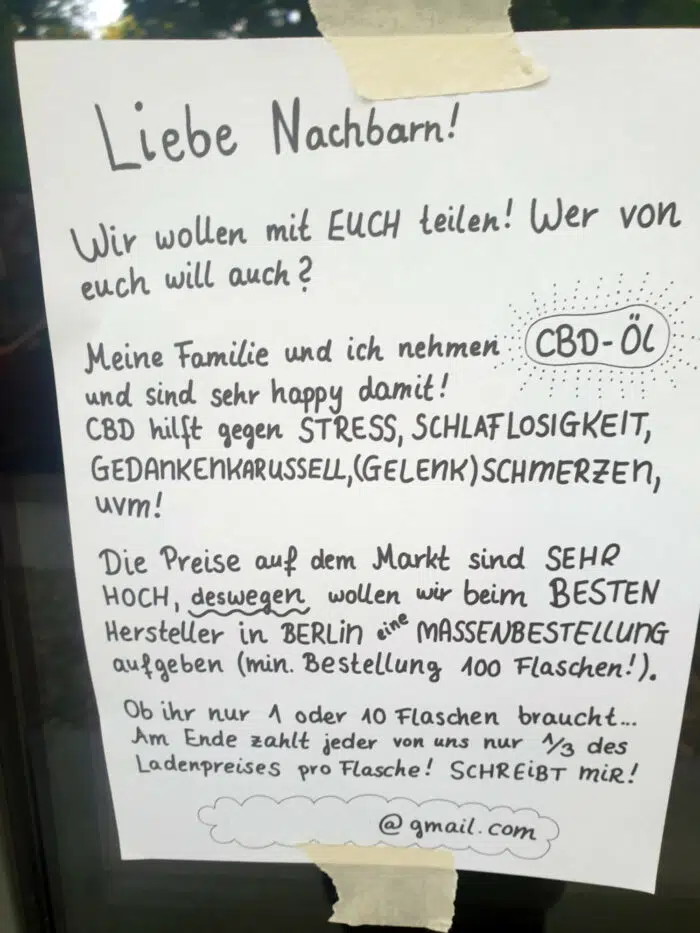 Liebe Nachbarn!
Wir wollen mit EUCH teilen! Wer von
euch will auch?
Meine Familie und ich nehmen CBD-ÖL
und sind sehr happy damit!
CBD hilft gegen STRESS, SCHLAFLOSIGKEIT,
GEDANKENKARUSSELL, (GELENK)SCHMERZEN,
uvm!
Die Preise auf dem Markt sind SEHR
HOCH, deswegen wollen wir beim BESTEN
Hersteller in BERLIN eine MASSENBESTELLUNG
aufgeben (min. Bestellung 100 Flaschen!).
Ob ihr nur 1 oder 10 Flaschen braucht...
Am Ende zahlt jeder von uns nur 1/3 des
Ladenpreises pro Flasche! SCHREIBT MIR!
@gmail.com